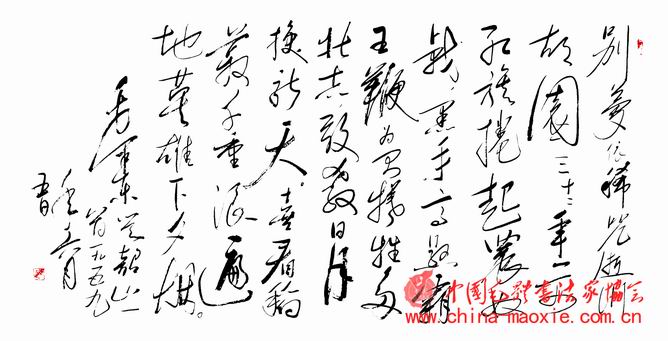 别梦依稀咒逝川
故園三十二年前
红旗捲起農奴
戟黑手高懸霸
主鞭为有犧牲多
壮志敢教日月
换新天喜看稻
菽千重浪遍
地英雄下夕烟。
毛澤東 韶山一
首一九五九
中國毛體書法家協會
www.china-maoxie.com.cn